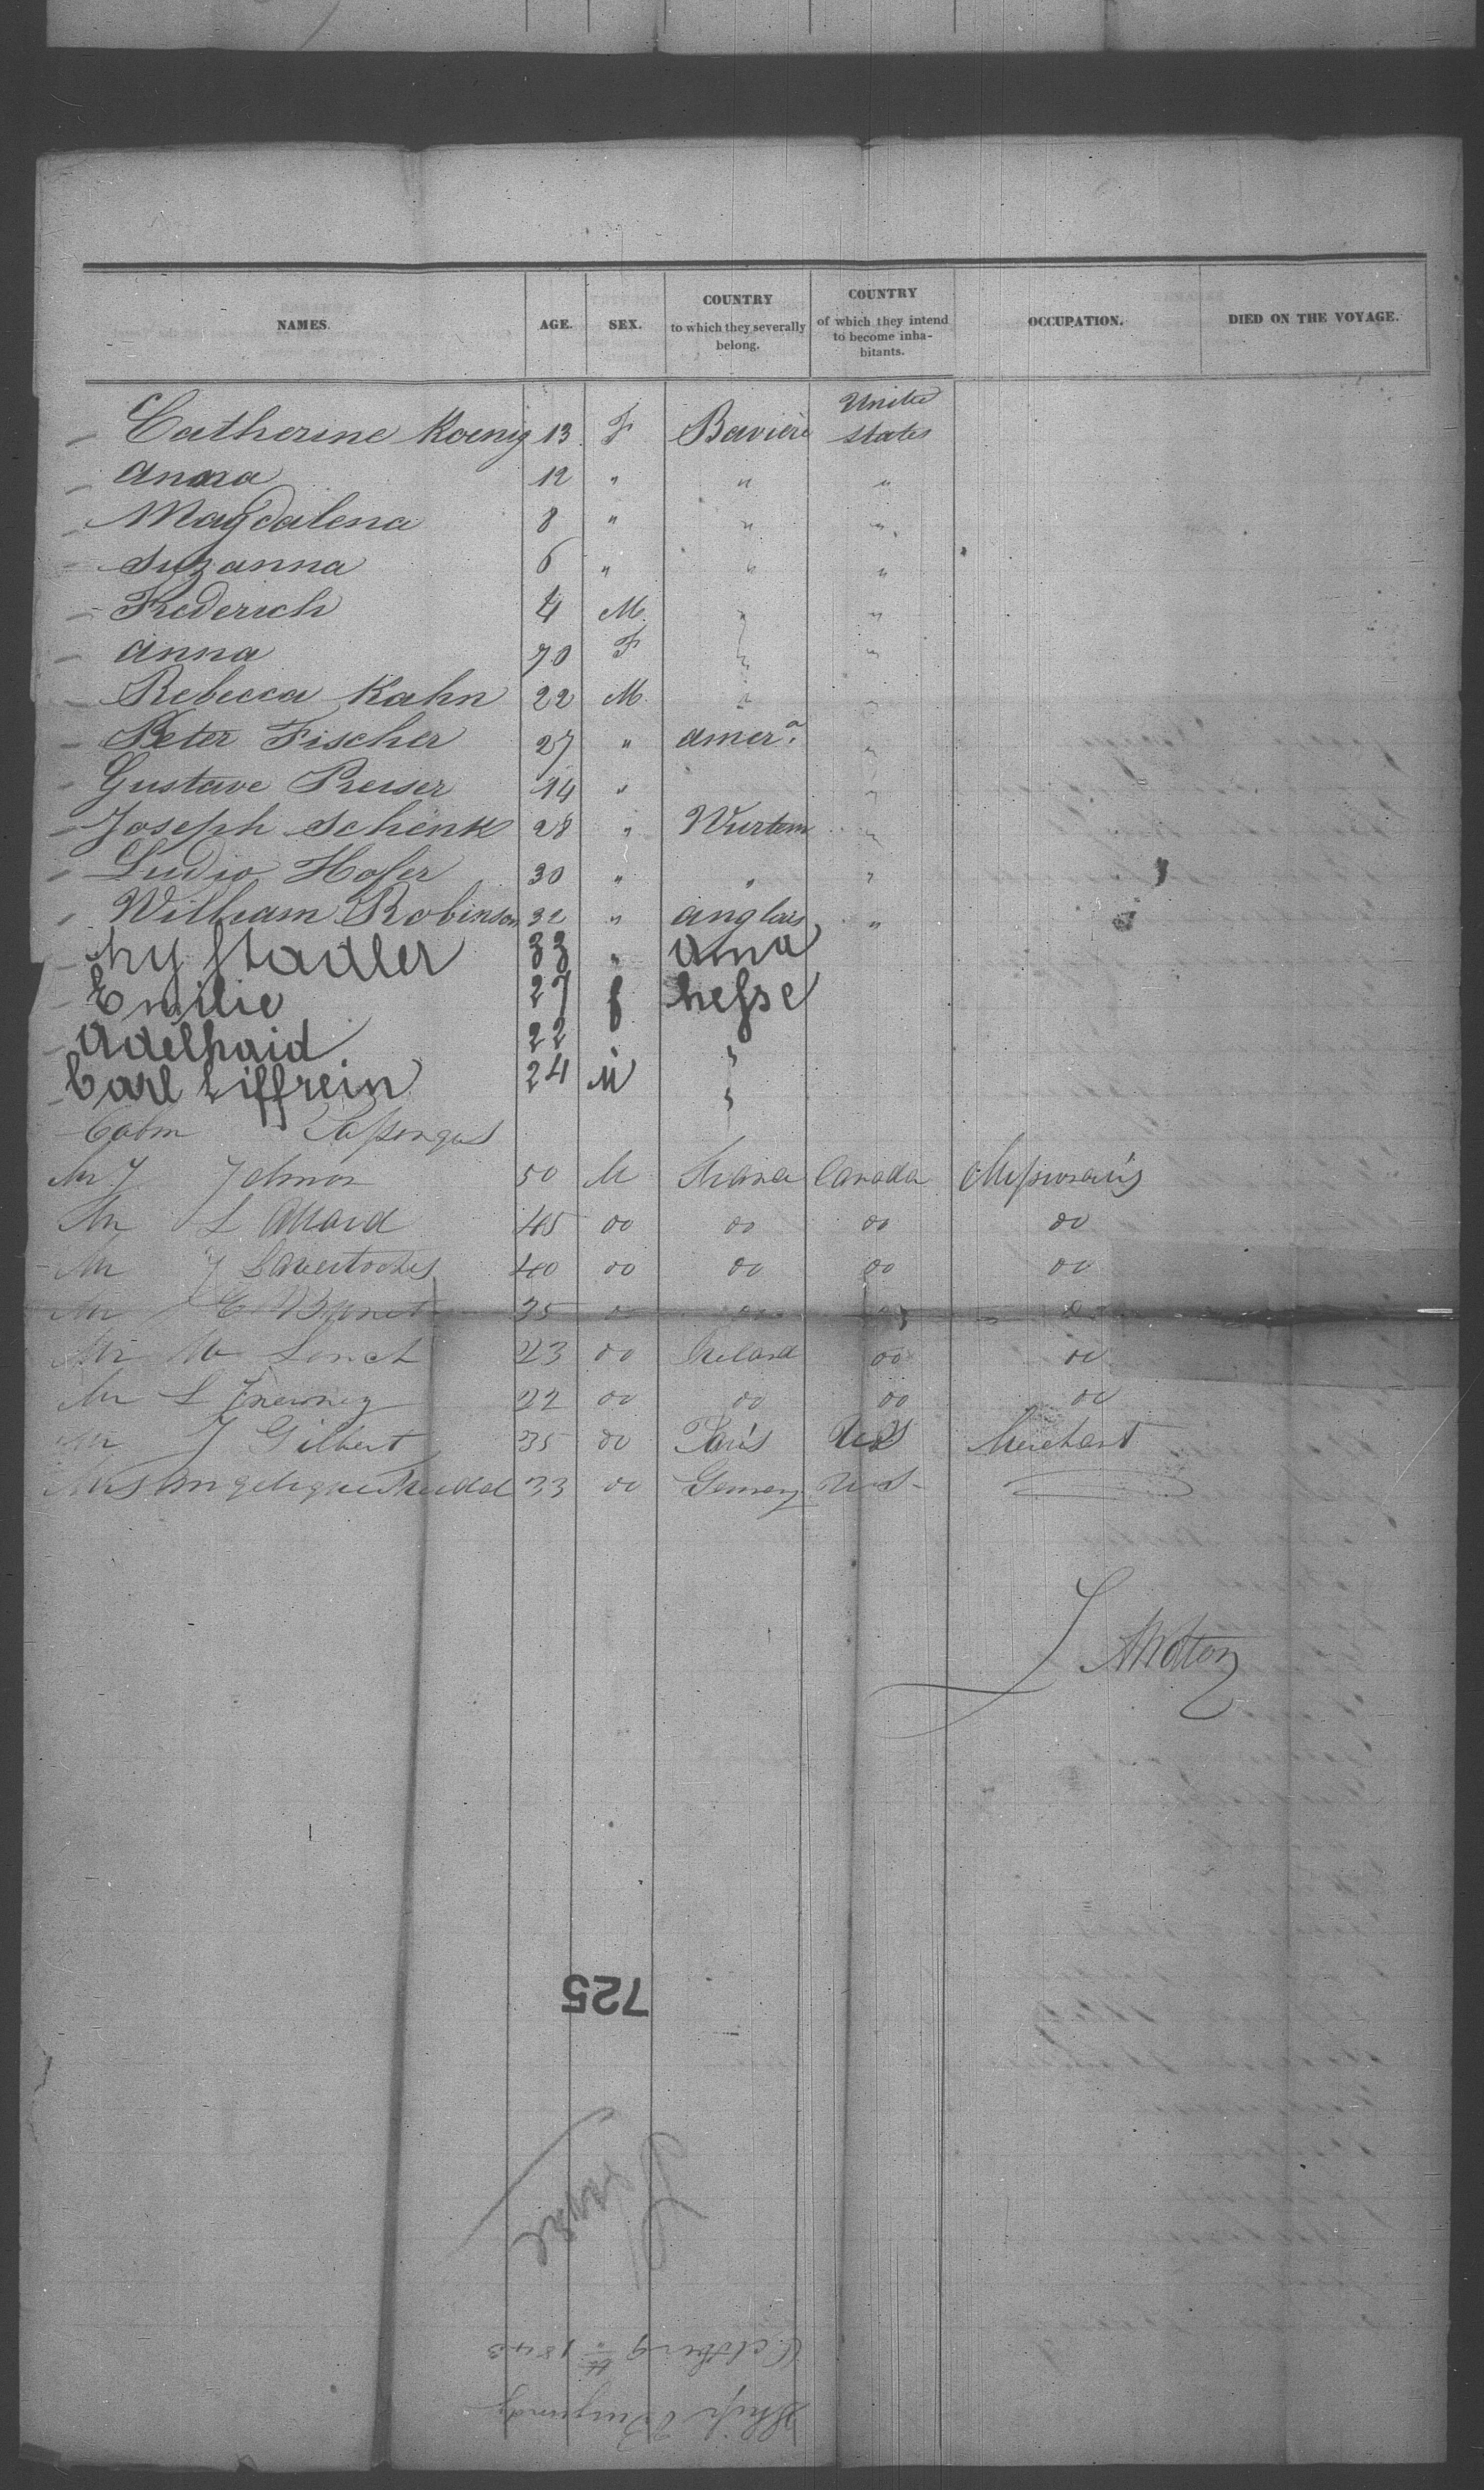 NAMES. AGE. SEX. COUNTRY to which they severally belong. COUNTRY of which they intend to become inhabitants. OCCUPATION. DIED ON THE VOYAGE.
Catherine Koenig 13 F Baviere United States
Anna 12 " " "
Magdalena 8 " " "
Suzanna 6 " " "
Frederich 4 M " "
Anna 70 F " "
Rebecca Kahn 22 M " "
Peter Fischer 27 " amer.a "
Gustave Preiser 14 " "
Joseph Schenk 28 " Wurtem "
Ludio Hofer 30 " " "
William Robinson 32 " anglais "
hy Stadler 33 "
Emilie 27 f hesse
Adelhaid 22 "
Carl 24 M "
Cabin Passengers
Mr J 50 M Canada
Mr L Allard 45 do do do do
Mr J 40 do do do do
Mr 35
Mr 23 do Ireland do do
Mr L 22 do do do do
Mr J Gilbert 35 do Paris U S Merchant
Angelique 33 do U S
725
October 9th 1843
Ship Burgundy